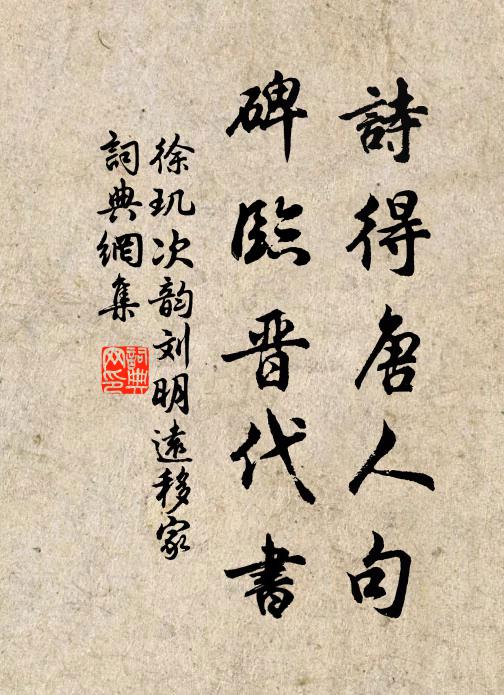 詩得唐人句
碑臨晋代書
徐玑次韵刘明遠移家
詞典網集
詞典网印